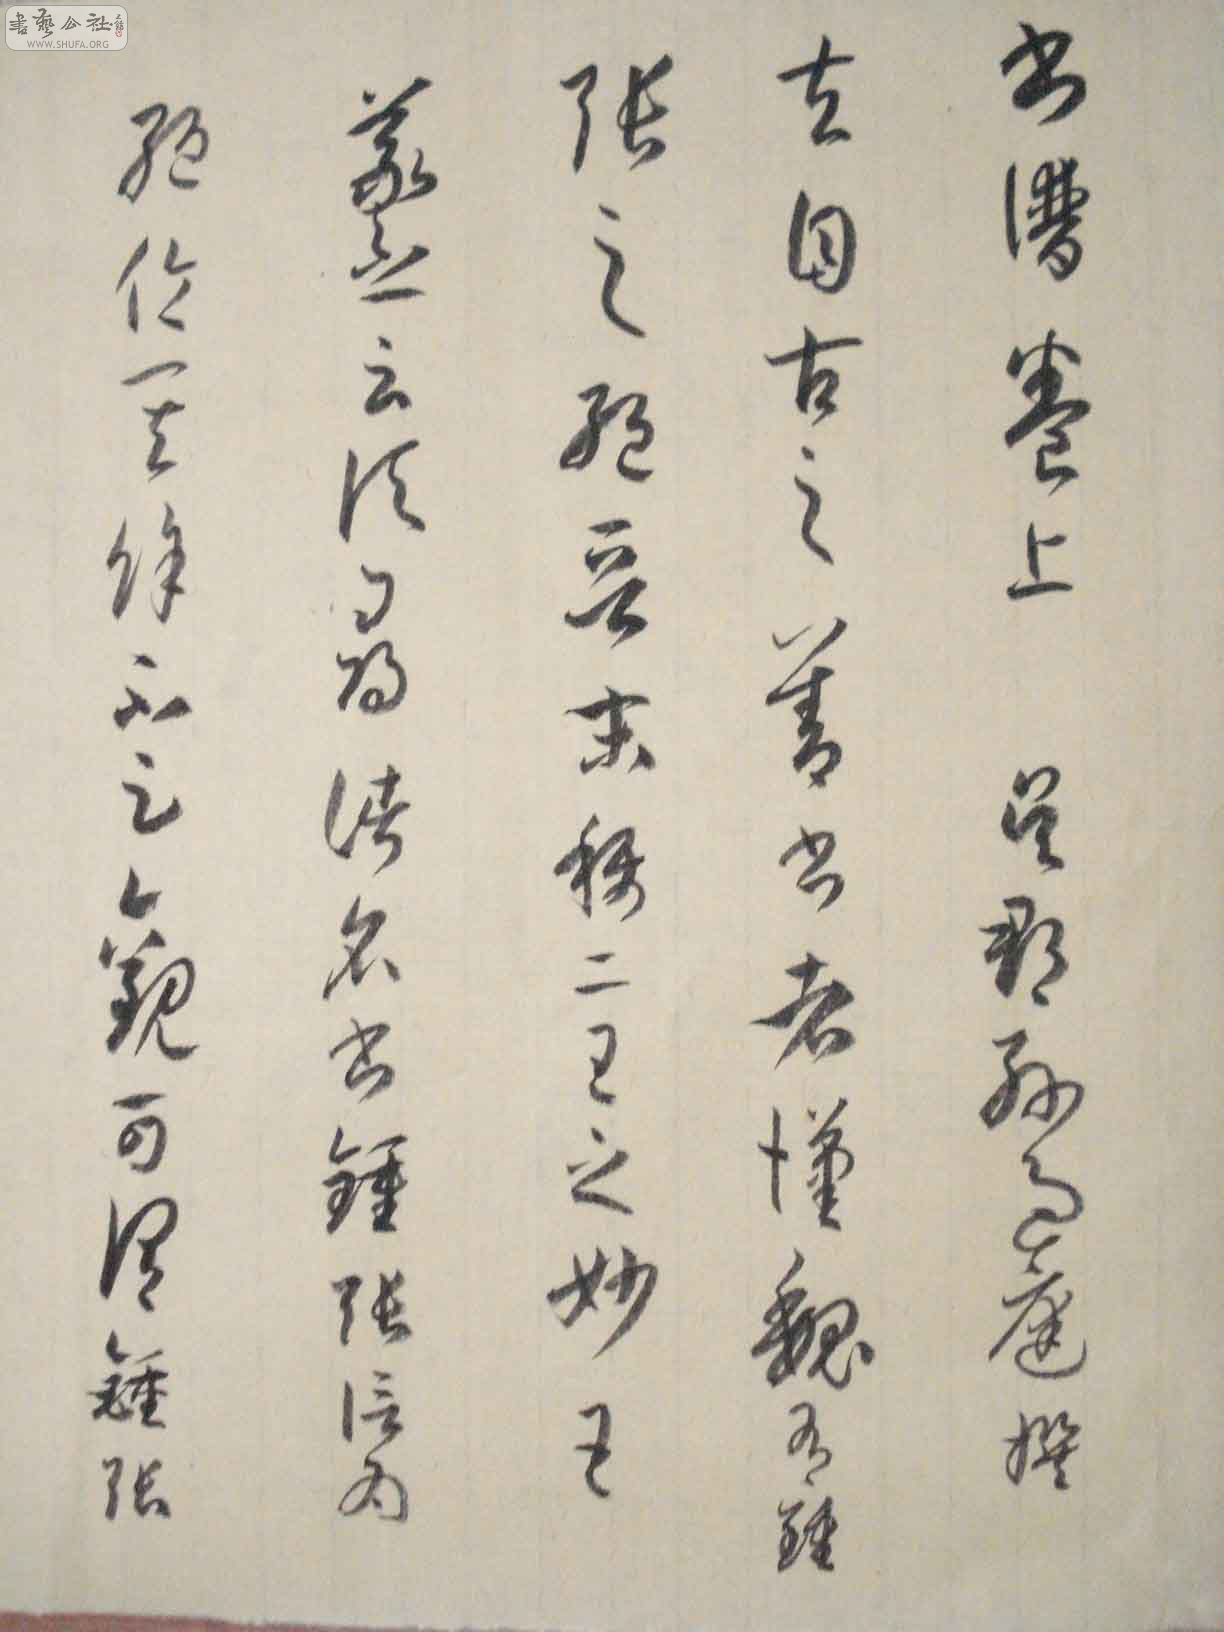 書藝公社
WWW.SHUFA.ORG
書譜卷上 吳郡孫過庭撰
夫自古之善書者漢魏有鍾
張之絕晉末稱二王之妙王
羲之云頃尋諸名書鍾張信為
絕倫其餘不足觀可謂鍾張